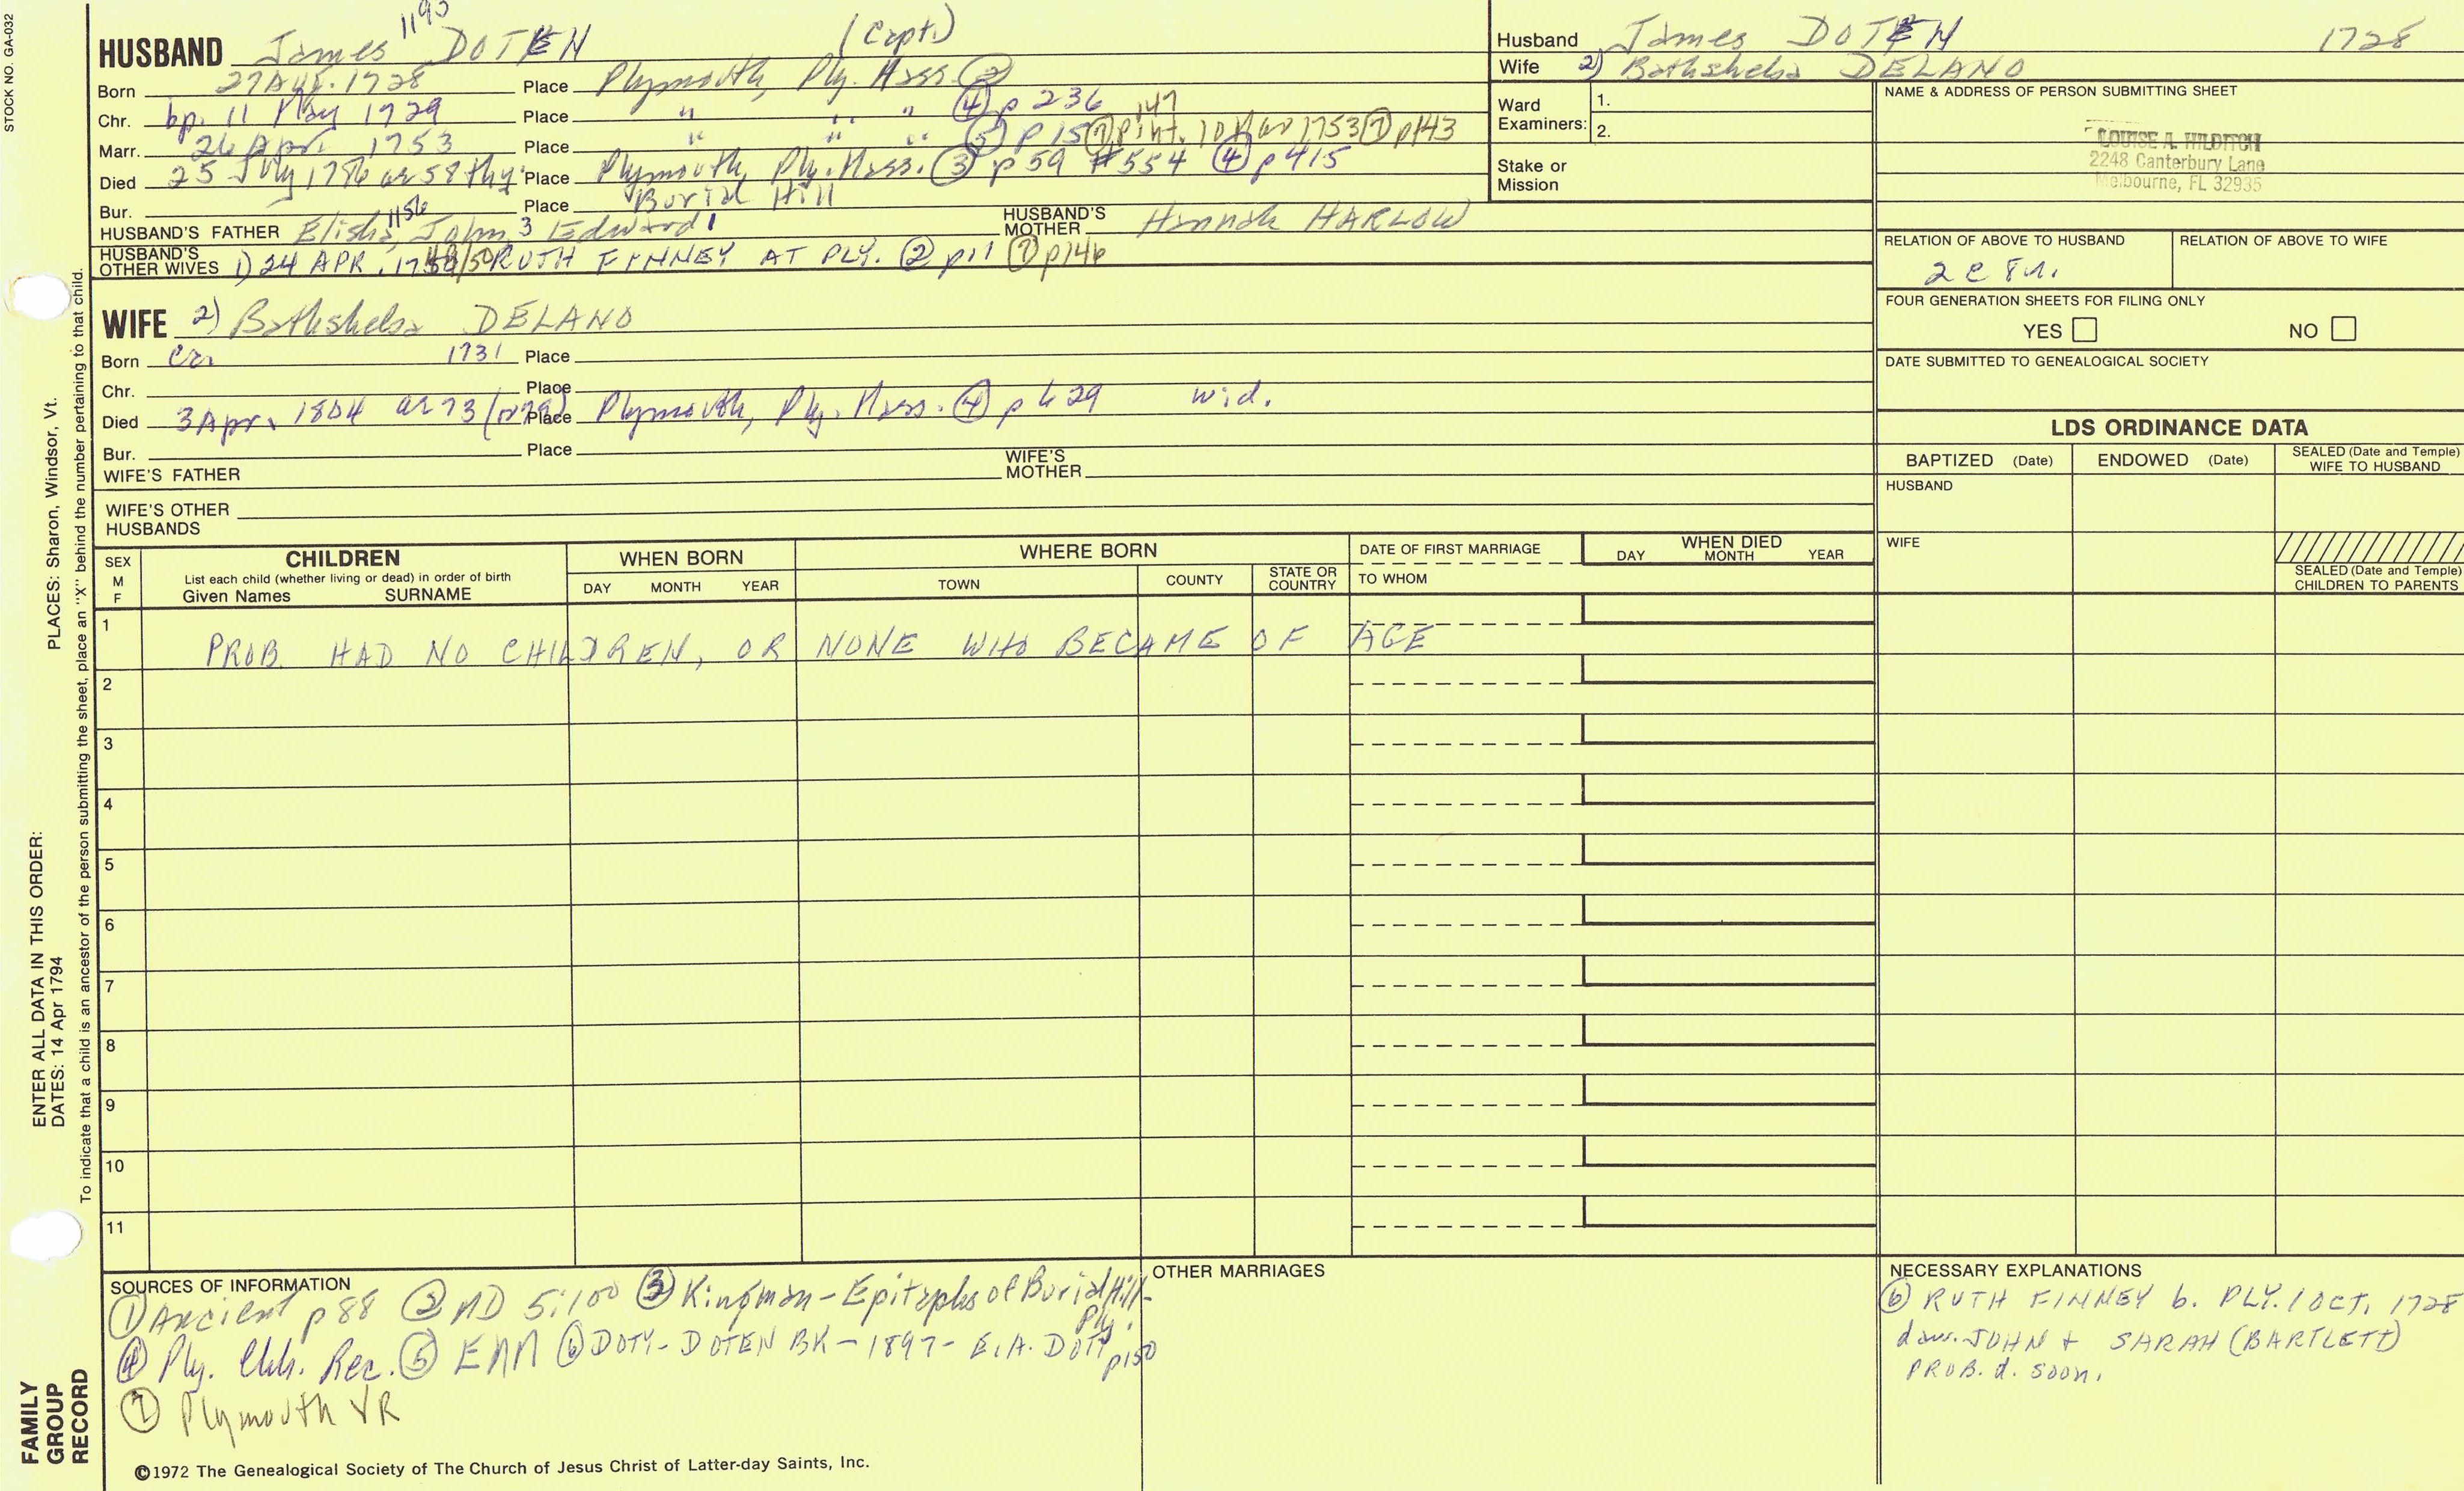 STOCK NO. GA-032
1193
HUSBAND James DOTEN (Capt.)
Born 27 Aug. 1728 Place Plymouth, Ply. Mass. ②
Chr. bp. 11 May 1729 Place " " " ④ p 236
Marr. 26 Apr. 1753 Place " " " ⑤ p 15 ⑦ p147 int. 10 Mar 1753 ⑦ p143
Died 25 July 1786 ae 58 thy. Place Plymouth, Ply. Mass. ③ p 59 #554 ④ p 415
Bur. Place Burial Hill
HUSBAND'S FATHER Elisha, 1156 John 3 Edward 1 HUSBAND'S MOTHER Hannah HARLOW
HUSBAND'S OTHER WIVES 1) 24 APR. /50 RUTH FINNEY AT PLY. ② p11 ⑦ p146
WIFE 2) Bathsheba DELANO
Born ca. 1731 Place
Chr. Place
Died 3 Apr. 1804 ae 73 Place Plymouth, Ply. Mass. ④ p 429 wid.
Bur. Place
WIFE'S FATHER WIFE'S MOTHER
WIFE'S OTHER HUSBANDS
Husband James DOTEN 1728
Wife 2) Bathsheba DELANO
Ward Examiners: 1.
2.
Stake or Mission
NAME & ADDRESS OF PERSON SUBMITTING SHEET
LOUISE A. HILDITCH
2248 Canterbury Lane
Melbourne, FL 32935
RELATION OF ABOVE TO HUSBAND RELATION OF ABOVE TO WIFE
2 c 8 r.
FOUR GENERATION SHEETS FOR FILING ONLY
YES NO
DATE SUBMITTED TO GENEALOGICAL SOCIETY
LDS ORDINANCE DATA
BAPTIZED (Date) ENDOWED (Date) SEALED (Date and Temple) WIFE TO HUSBAND
HUSBAND
WIFE
SEALED (Date and Temple) CHILDREN TO PARENTS
SEX M F
CHILDREN
List each child (whether living or dead) in order of birth
Given Names SURNAME
WHEN BORN
DAY MONTH YEAR
WHERE BORN
TOWN COUNTY STATE OR COUNTRY
DATE OF FIRST MARRIAGE
TO WHOM
WHEN DIED
DAY MONTH YEAR
1 PROB. HAD NO CHILDREN, OR NONE WHO BECAME OF AGE
2
3
4
5
6
7
8
9
10
11
SOURCES OF INFORMATION
① Ancient p 88 ② MD 5:100 ③ Kingman - Epitaphs of Burial Hill - Ply.
④ Ply. Chh. Rec. ⑤ EMM ⑥ DOTY - DOTEN BK - 1897 - E.A. DOTY p150
⑦ Plymouth VR
OTHER MARRIAGES
NECESSARY EXPLANATIONS
⑥ RUTH FINNEY b. PLY. 1 OCT. 1728
dau. JOHN + SARAH (BARTLETT)
PROB. d. soon.
©1972 The Genealogical Society of The Church of Jesus Christ of Latter-day Saints, Inc.
FAMILY GROUP RECORD
ENTER ALL DATA IN THIS ORDER:
DATES: 14 Apr 1794
PLACES: Sharon, Windsor, Vt.
To indicate that a child is an ancestor of the person submitting the sheet, place an "X" behind the number pertaining to that child.